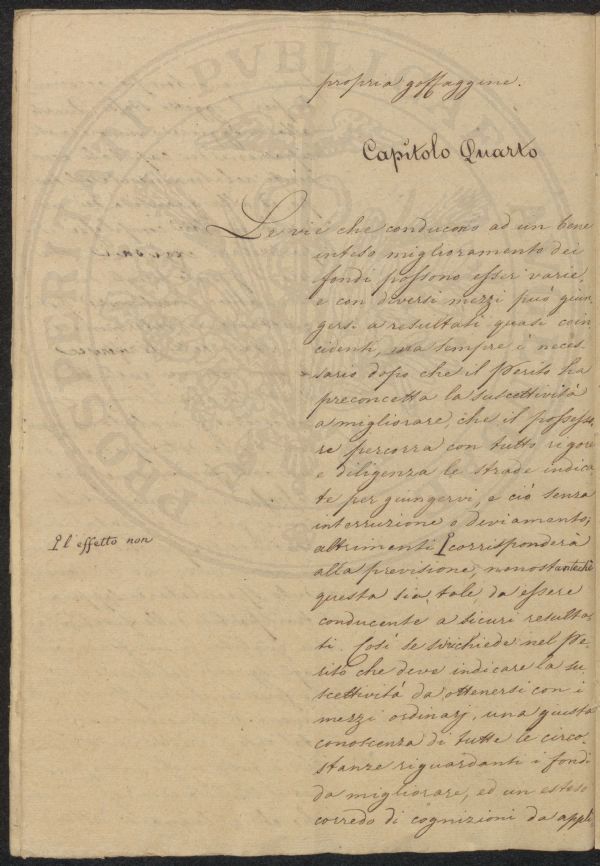 propria goffaggine.
Capitolo Quarto
Le vie che conducono ad un bene
inteso miglioramento dei
fondi possono esser varie,
e con diversi mezzi può giun-
gersi a resultati quasi coin
cidenti, ma sempre è neces-
sario dopo che il Perito ha
preconcetta la suscettività
a migliorare, che il possesso
re percorra con tutto rigore
e diligenza le strade indica
te per giungervi, e ciò senza
interruzione o deviamento,
altrimenti corrisponderà
l'effetto non
alla previsione, nonostantechè
questa sia tale da essere
conducente a sicuri resulta-
ti. Così se si richiede nel Pe-
rito che deve indicare la su-
scettività da ottenersi con i
mezzi ordinarj, una giusta
conoscenza di tutte le circo-
stanze riguardanti i fondi
da migliorare, ed un esteso
corredo di cognizioni da appli
PROSPERITATI PVBLICAE